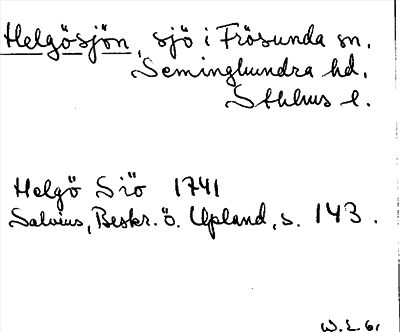 Helgösjön, sjö i Frösunda sn.
Seminghundra hd.
Sthlms l.
Helgö Siö 1741
Salvius, Beskr. ö. Upland, s. 143.
W.L. 61